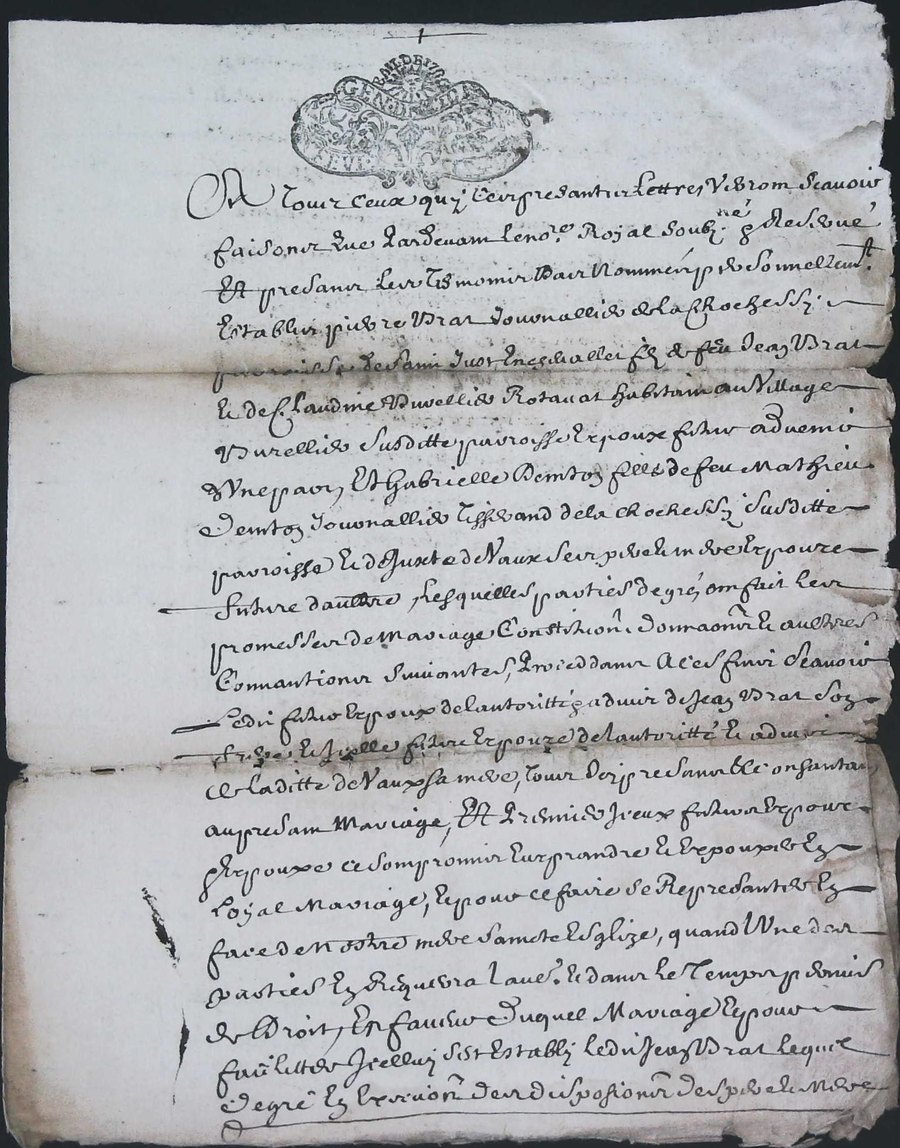 GEN. DE
A Tous Ceux quy Ces presantes Lettres Verront Scavoir
faisons Que Pardevant le no.re Royal soubz.né
Et presans Les Tesmoins Bas Nommés personnellem.t
Establis pierre Brat Journallier de la Chochessy
parroisse de saint Just En chevallet filz de feu Jean Brat
Et de Claudine Burellier Rotavat habitant au Village
Burellier susditte parroisse Espoux futur advenir
d'Une part, Et Gabrielle fille de feu Mathieu
Journallier Tisserand de la Chochessy susditte
parroisse Et de de Vaux ses pere et mere Espouze
future d'aultre, Lesquelles parties de gré, ont fait Les
promesses de Mariage Constitutions donnaons Et aultres
Convantions suivantes, proceddant A ces fins Scavoir
Ledit futur Espoux de l'autoritté & advis de Jean Brat son
frere, Et Icelle future Espouze de l'autoritté Et advis
de laditte de Vaux sa mere, Tous Icy presans Et Consantans
au presant Mariage, Et Premier Iceux futurs Espoux
& Espouze ce sont promis Eux prandre Et Espouzer En
Loyal Mariage, Et pour ce faire se Represanter En
face de Nostre mere saincte Esglize, quand Une des
parties En Requerra l'autre Et dans le Temps permis
de Droit, En faveur Duquel Mariage Et pour
Icelluy s'est Estably ledit Jean Brat Lequel
De gré En Execuon des dispositions de ses pere Et Mere